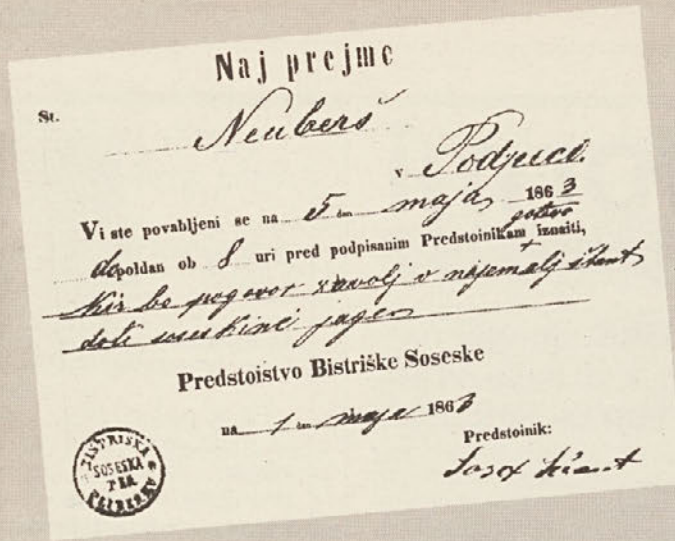 Naj prejme
St.
Neuberš
v Podjuni.
Vi ste povabljeni se na 5 ten maja, 1863
gotovo
dopoldan ob 8 uri pred podpisanim Predstoinikam + iznaiti,
kir bo pogovor zavolj
jagen
Predstoistvo Bistriške Soseske
na 1 ten maja 1863
Predstoinik:
Josef
BISTRISKA
SOSESKA
PLIBERKU